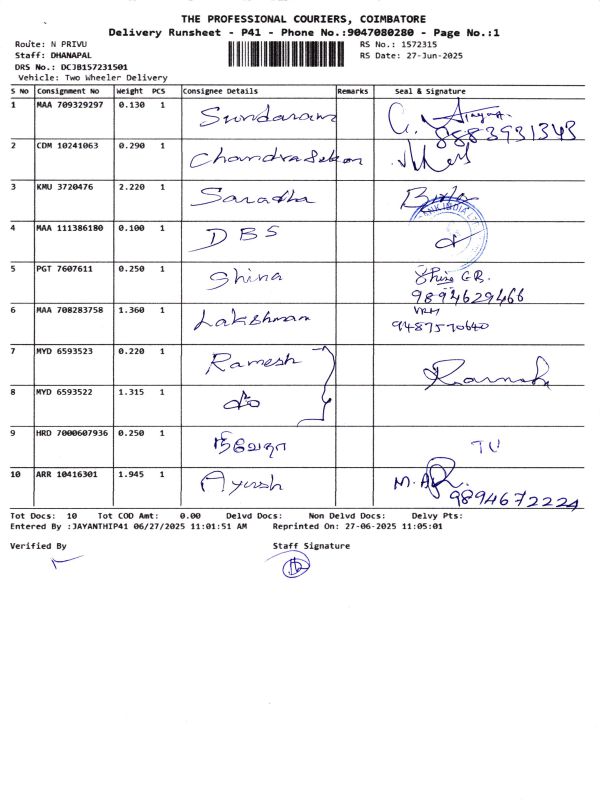 THE PROFESSIONAL COURIERS, COIMBATORE
Delivery Runsheet - P41 - Phone No.:9047080280 - Page No.:1
Route: N PRIVU RS No.: 1572315
Staff: DHANAPAL RS Date: 27-Jun-2025
DRS No.: DCJB157231501
Vehicle: Two Wheeler Delivery
S No Consignment No Weight PCS Consignee Details Remarks Seal & Signature
1 MAA 709329297 0.130 1 Sundaram
8883931343
2 CDM 10241063 0.290 1 Chandrasekar
3 KMU 3720476 2.220 1 Saradha
4 MAA 111386180 0.100 1 DBS
5 PGT 7607611 0.250 1 Shina
9894629466
6 MAA 708283758 1.360 1 Lakshman
9487570640
7 MYD 6593523 0.220 1 Ramesh Ramesh
8 MYD 6593522 1.315 1
9 HRD 7000607936 0.250 1
10 ARR 10416301 1.945 1 Ayush
9894672224
Tot Docs: 10 Tot COD Amt: 0.00 Delvd Docs: Non Delvd Docs: Delvy Pts:
Entered By :JAYANTHIP41 06/27/2025 11:01:51 AM Reprinted On: 27-06-2025 11:05:01
Verified By Staff Signature